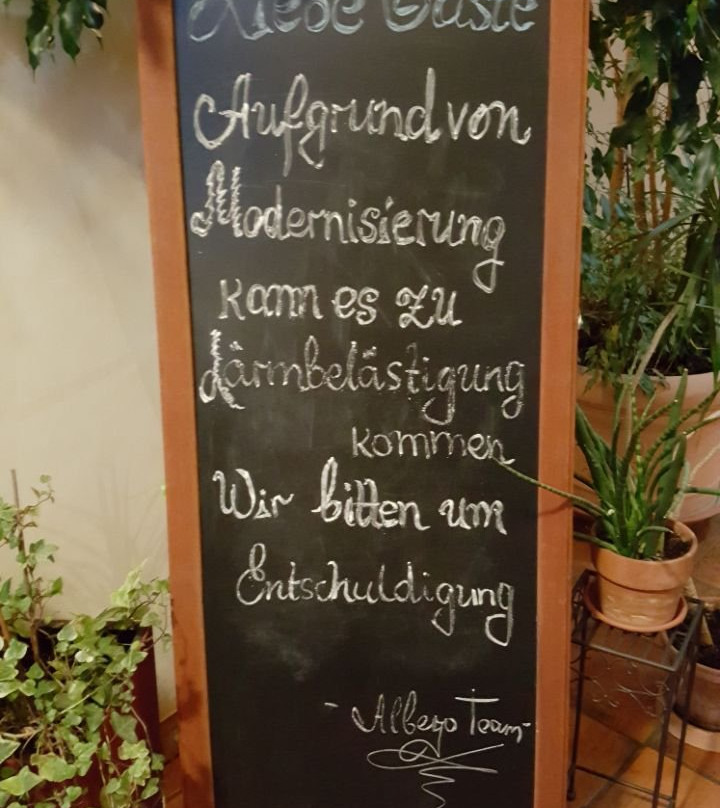 Liebe Gäste
Aufgrund von
Modernisierung
kann es zu
Lärmbelästigung
kommen
Wir bitten um
Entschuldigung
- Albego Team -